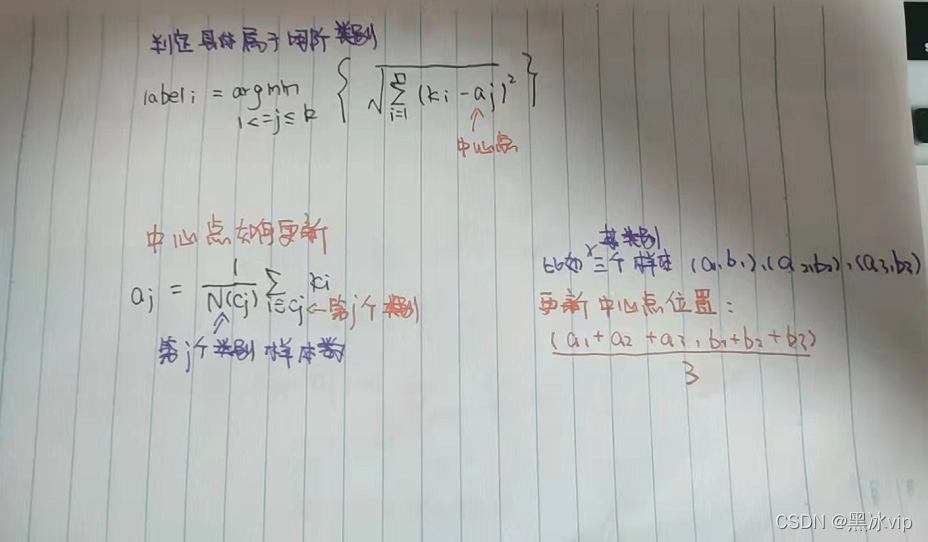 判定具体属于哪个类别
label i = argmin { √ n∑i=1 (ki - aj)² }
i<=j≤k
中心点
中心点如何更新
aj = 1/N(Cj) ∑i∈Cj ki ← 第j个类别
第j个类别 样本数
某类别
比如 三个样本 (a1,b1),(a2,b2),(a3,b3)
更新中心点位置:
(a1+a2+a3, b1+b2+b3)
3
CSDN @黑冰vip